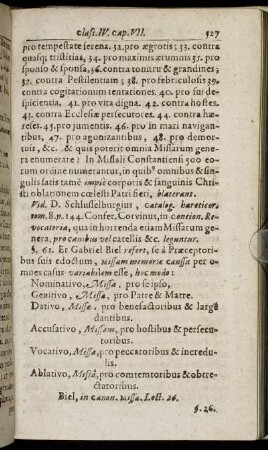 Classi. IV. Cap. VII. 527
pro tempestate serena. 32. pro ægrotis; 33. contra
quasq; tristitias, 34. pro maximis ærumnis 35. pro
sponio & sponsa, 36. contra tonitru & grandines;
37. contra Pestilentiam; 38. pro febriculosis 39.
contra cogitationum tentationes. 40. pro sui de-
spicientia. 41. pro vita digna. 42. contra hostes.
43. contra Ecclesiæ persecutores. 44. contra hæ-
reses, 45. pro jumentis. 46. pro in mari navigan-
tibus, 47. pro agonizantibus, 48. pro demor-
tuis, &c. & quis poterit omnia Missarum gene-
ra enumerare? In Missali Constantiensi 300 eo-
rum ordine numerantur, in quib⁹ omnibus & sin-
gulis satis tamẽ impiè corporis & sanguinis Chri-
sti oblationem cœlesti Patri fieri, blaterant.
Vid. D. Schlusselburgius, catalog. hæreticor.
tom. 8. p. 144. Confer. Corvinus, in Concion. Re-
vocatoria, qua in horrenda etiam Missarum ge-
nera, pro canibus vel catellis &c. leguntur.
§. 61. Et Gabriel Biel refert, se à Præceptori-
bus suis edoctum, Missam memoriæ caussa per o-
mnes casus variabilem esse, hoc modo:
Nominativo, Missa, pro se ipso,
Genitivo, Missæ, pro Patre & Matre.
Dativo, Missæ, pro benefactoribus & large
dantibus.
Accusativo, Missam, pro hostibus & persecu-
toribus.
Vocativo, Missa, pro peccatoribus & incredu-
lis.
Ablativo, Missâ, pro comtemtoribus & obtre-
ctatoribus.
Biel, in Canon. Missæ. Lect. 26.
§. 26.